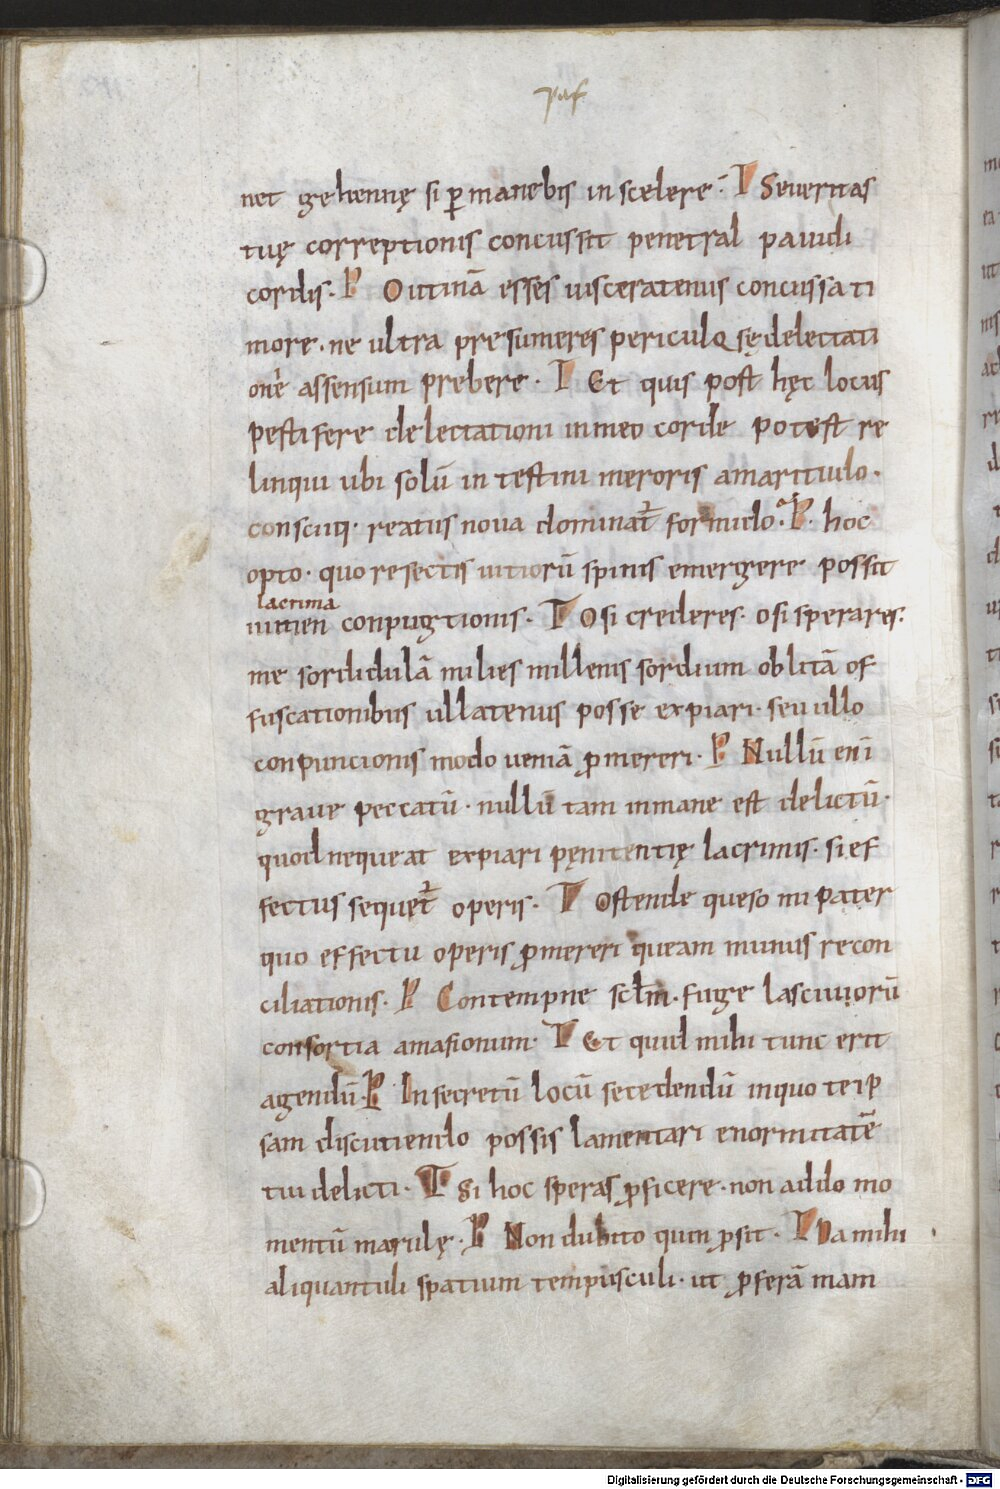 paf
net gehennę si p̲manebis in scelere· T Seueritas
tuę correptionis concussit penetral pauidi
cordis· P O utinā esses uisceratenus concussa ti
more· ne ultra presumeres periculosę delectati
oni assensum prebere· T Et quis post hęc locus
pestifere delectationi in meo corde potest re
linqui ubi solū intestini meroris amaritudo·
consciiq· reatus noua dominat̄ formido· P· hoc
opto· quo resectis uitiorū spinis emergere possit
lacrima
uimen conpugtionis· T O si crederes· o si sperares·
me sordidulā milies millenis sordium oblitā of
fuscationibus ullatenus posse expiari· seu ullo
conpuncionis modo ueniā p̲mereri· P Nullū eni
graue peccatū· nullū tam inmane est delictū·
quod nequeat expiari pęnitentię lacrimis· si ef
fectus sequet̄ operis· T Ostende queso mi pater
quo effectu operis p̲mereri queam munus recon
ciliationis· P Contempne sclm̄· fuge lasciuiorū
consortia amasionum· T Et quid mihi tunc erit
agendū· P In secretū locū secedendū inquo te ip
sam discutiendo possis lamentari enormitatē
tui delicti· T Si hoc speras p̲ficere· non addo mo
mentū morulę· P Non dubito quin p̲sit· T Da mihi
aliquantuli spatium tempusculi· ut p̲ferā mam
Digitalisierung gefördert durch die Deutsche Forschungsgemeinschaft - DFG